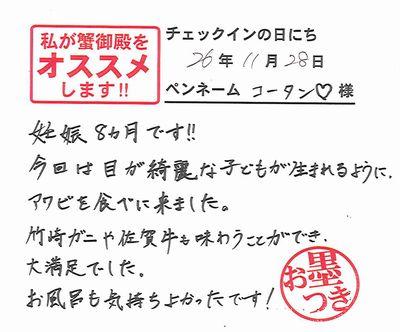 私が蟹御殿を
オススメ
します!!
チェックインの日にち
26年 11月 28日
ペンネーム コータン♡ 様
妊娠8ヵ月です!!
今回は目が綺麗な子どもが生まれるように、
アワビを食べに来ました。
竹崎ガニや佐賀牛も味わうことができ、
大満足でした。
お風呂も気持ちよかったです!
お墨つき